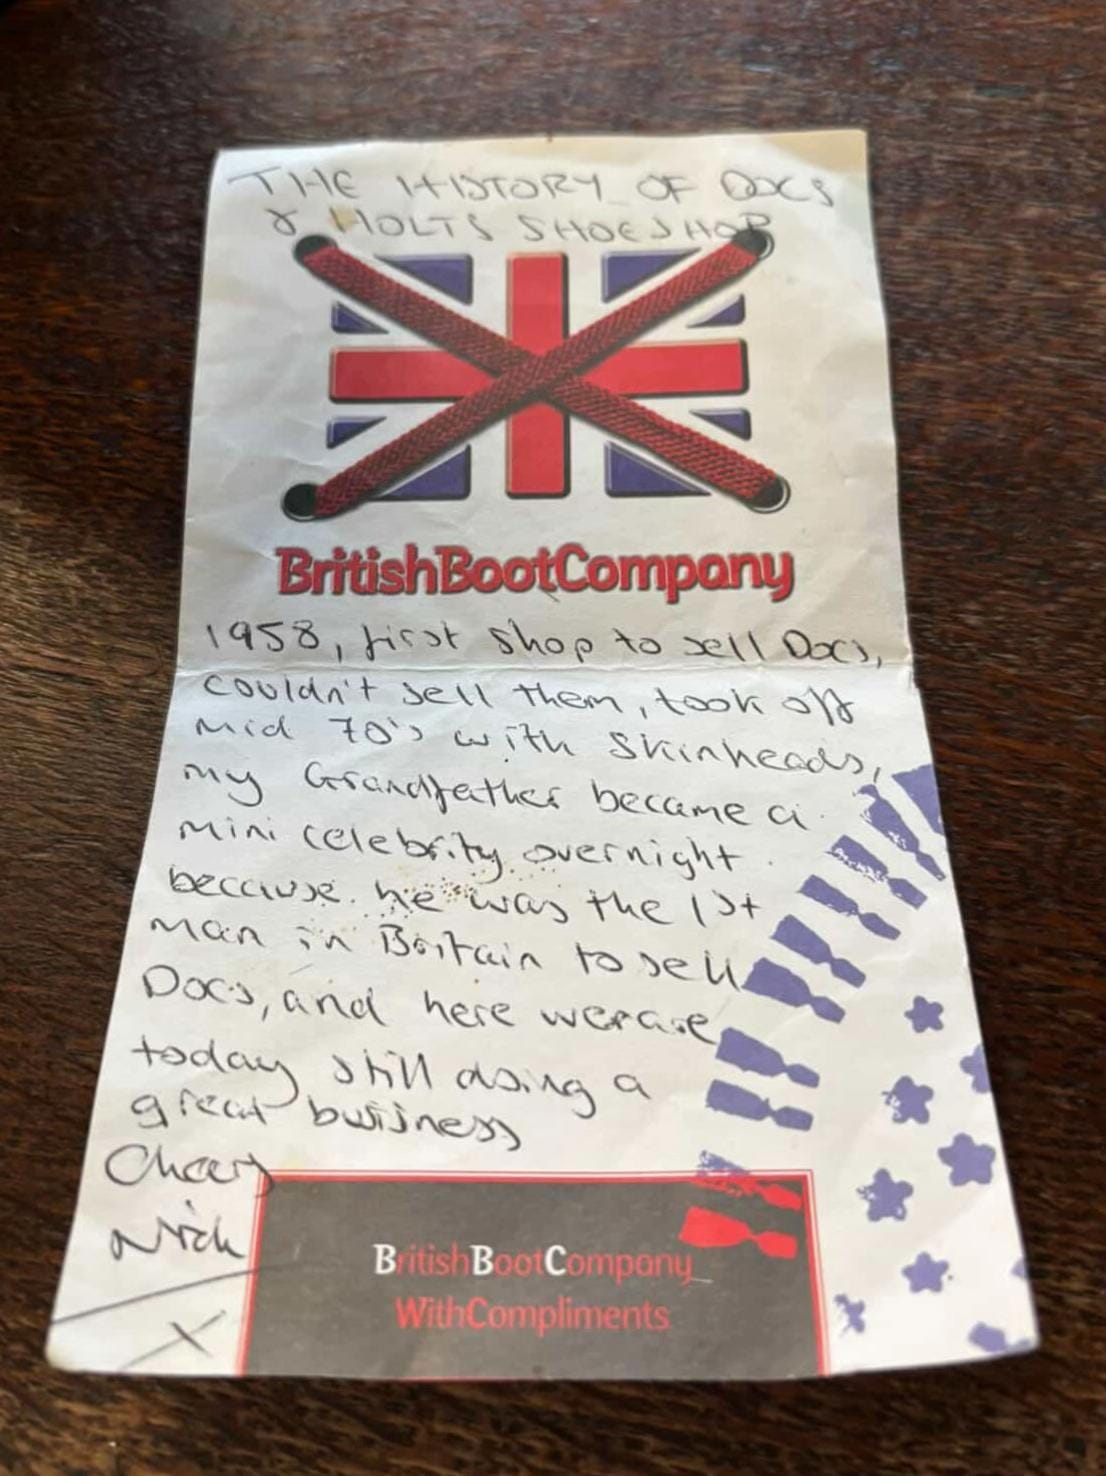 THE HISTORY OF DOCS
& HOLTS SHOESHOP
BritishBootCompany
1958, first shop to sell Docs,
couldn't sell them, took off
mid 70's with Skinheads,
my Grandfather became a
mini celebrity overnight
because he was the 1st
man in Britain to sell
Docs, and here we are
today still doing a
great business
Cheers
Nick
X
BritishBootCompany
WithCompliments